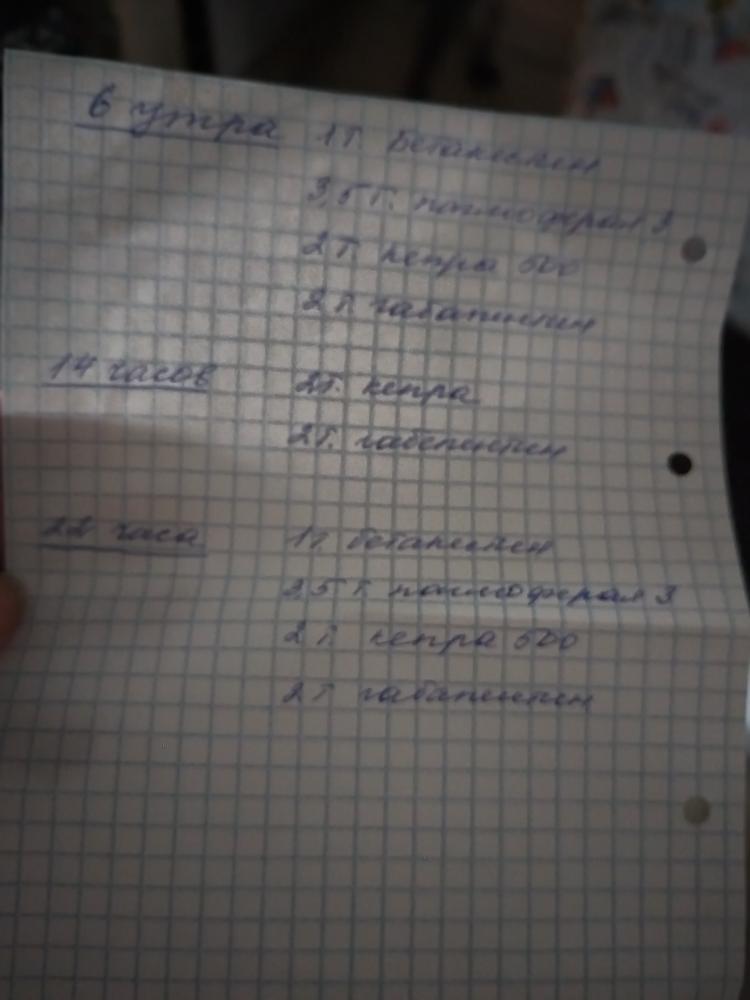 6 утра 1т. беталенген
3,5 т. паглюферал 3
2т. кепра 500
2т. габапентин
14 часов 2т. кепра
2т. габапентин
22 часа 1т беталенген
2,5 т. паглюферал 3
2 т. кепра 500
2 т габапентин